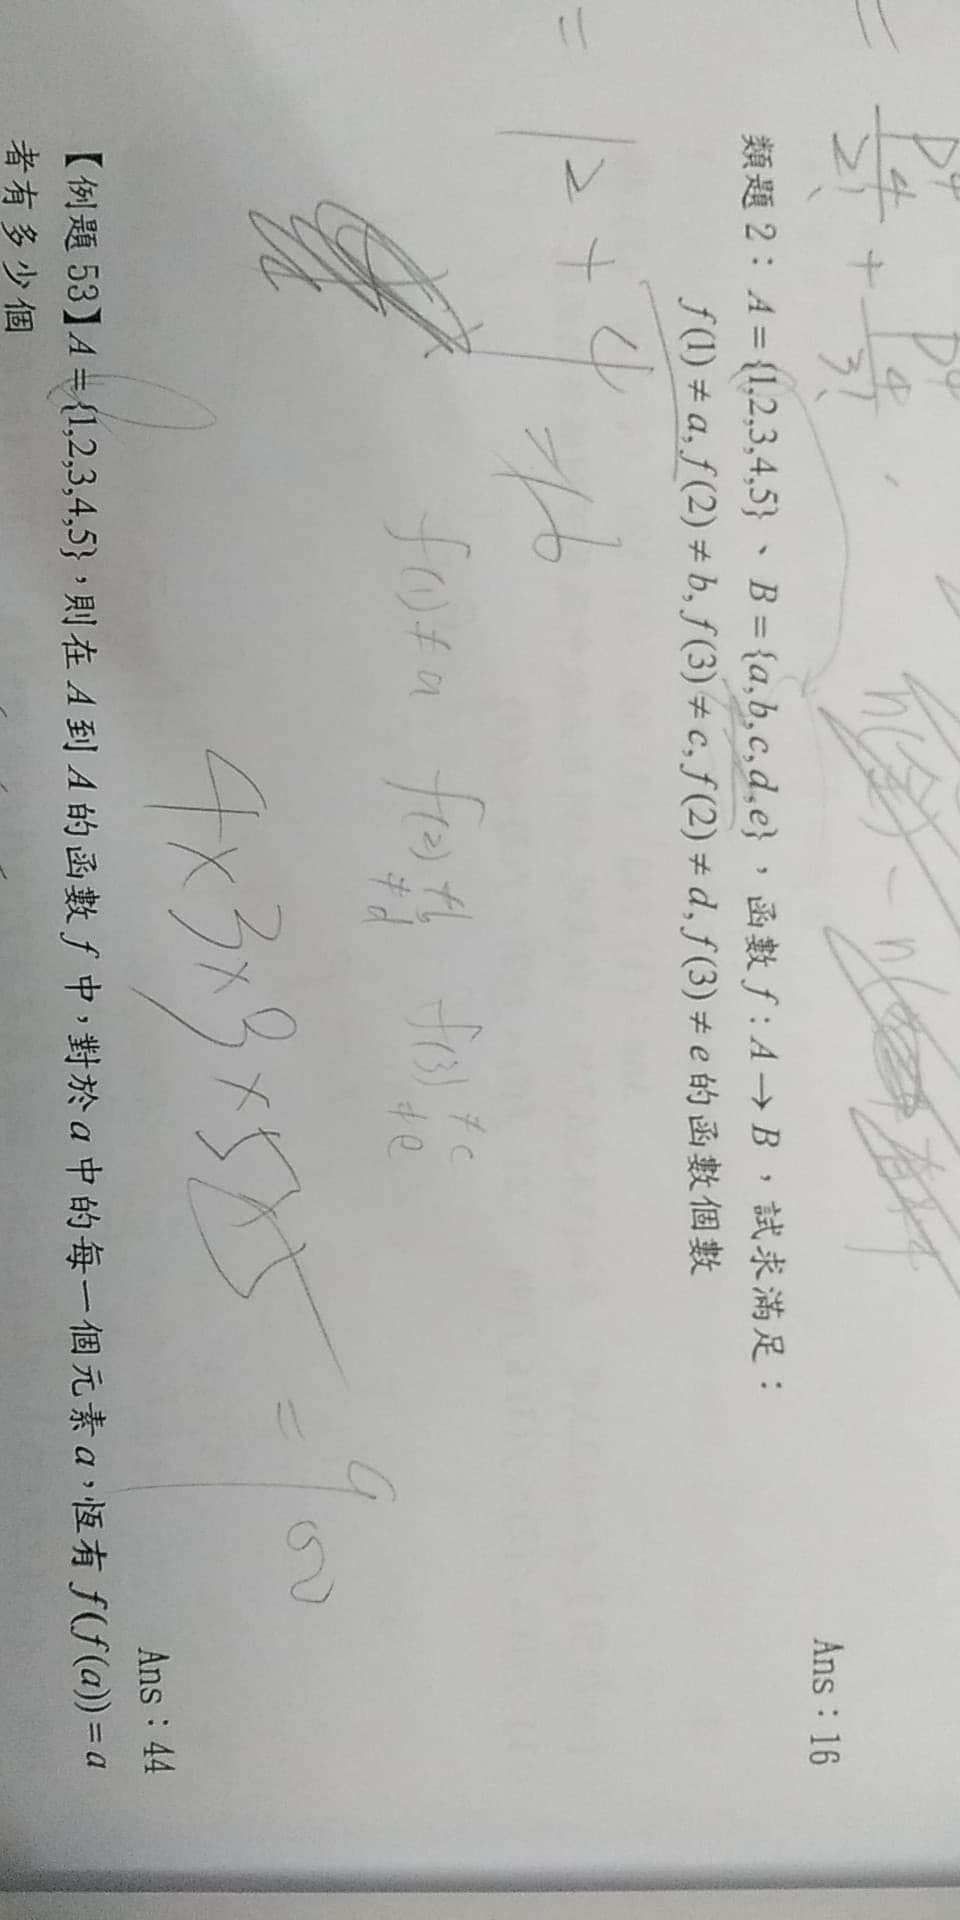 Ans：16
類題 2： A={1,2,3,4,5}、B={a,b,c,d,e}，函數 f : A→B，試求滿足：
f(1)≠a, f(2)≠b, f(3)≠c, f(2)≠d, f(3)≠e 的函數個數
= 12+4
16
f(1)≠a f(2)≠b f(3)≠c
≠d ≠e
4×3×3×5×5 = 900
Ans：44
【例題 53】A={1,2,3,4,5}，則在 A 到 A 的函數 f 中，對於 a 中的每一個元素 a，恆有 f(f(a))=a
者有多少個